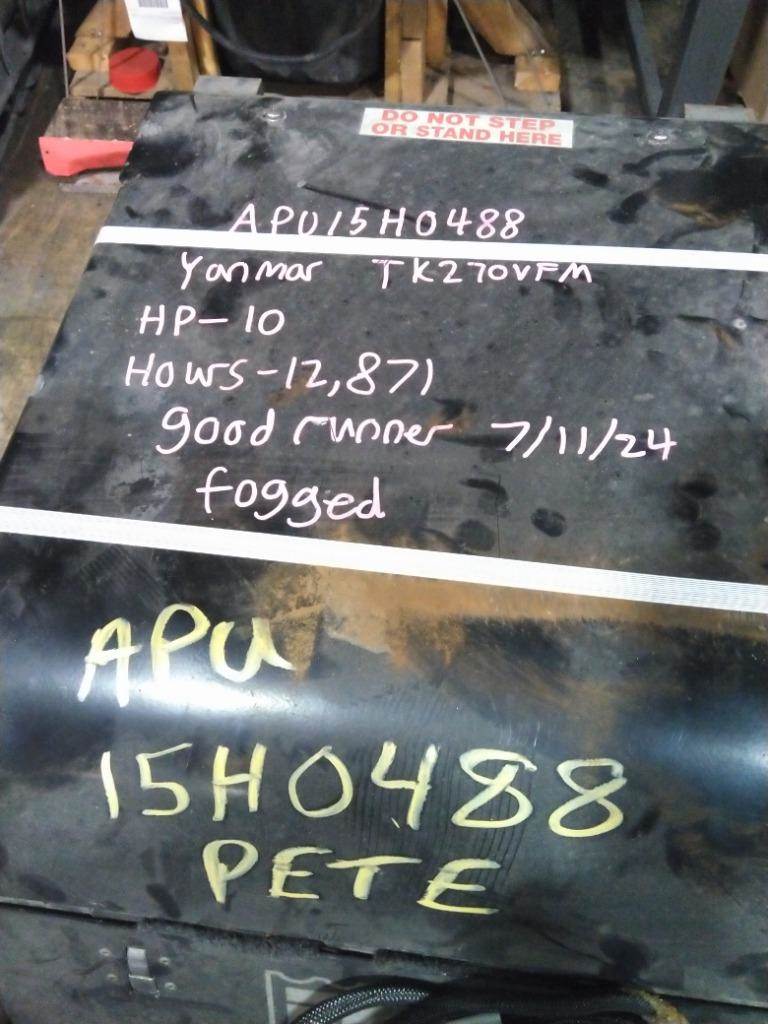 DO NOT STEP
OR STAND HERE
APU15H0488
Yanmar TK270VFM
HP-10
Hours-12,871
good runner 7/11/24
fogged
APU
15H0488
PETE